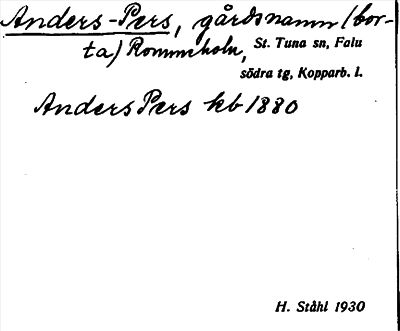 Anders-Pers, gårdsnamn (bor-
ta) Rommeholn, St. Tuna sn, Falu
södra tg, Kopparb. l.
Anders Pers kb 1880
H. Ståhl 1930